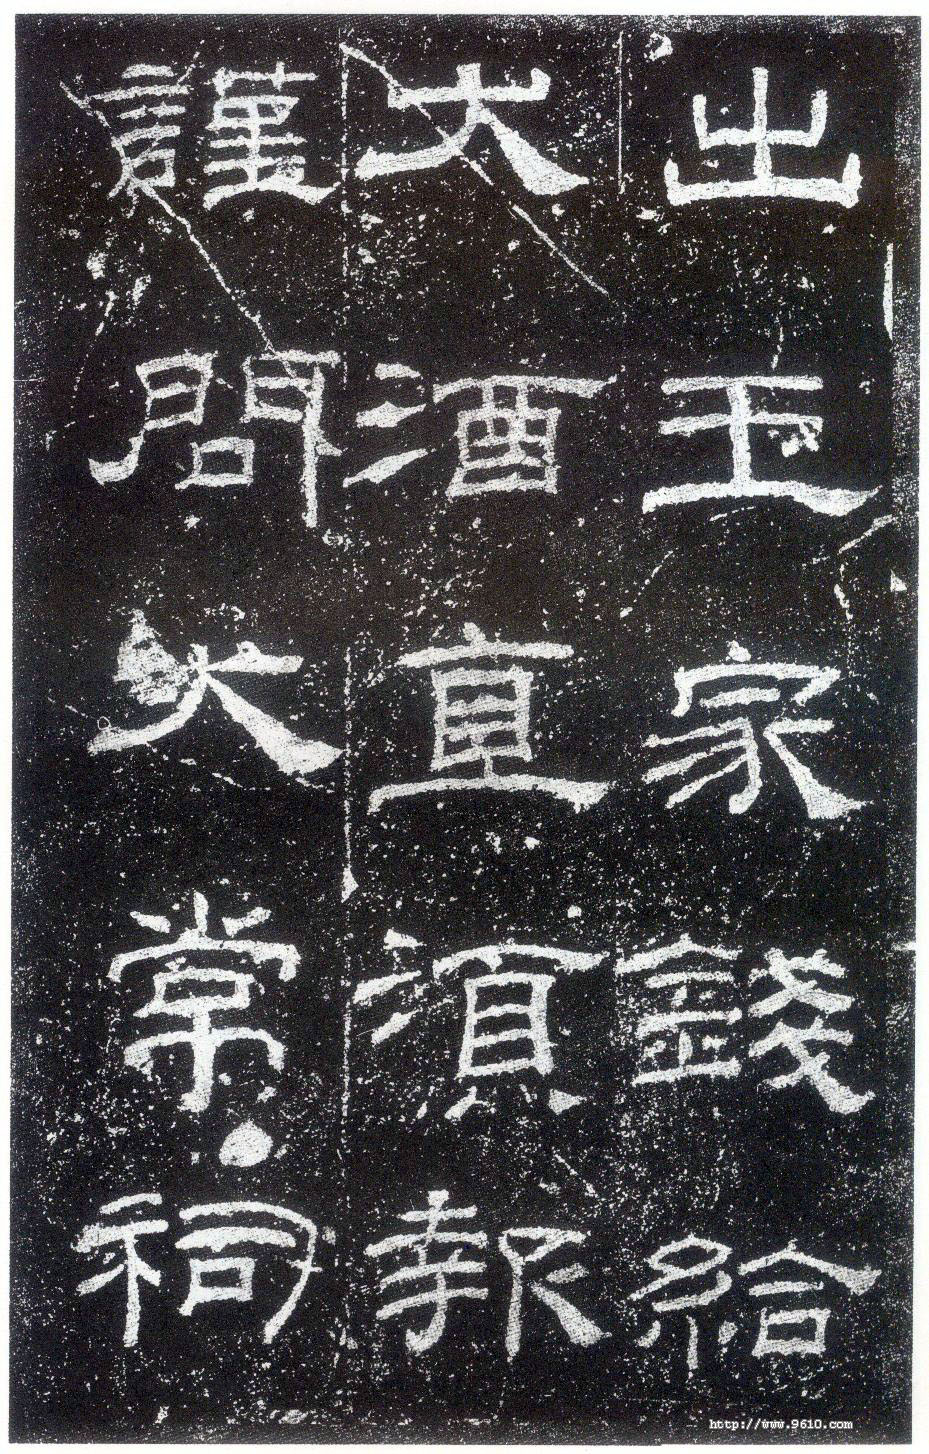 出王家錢給
大酒直須報
謹問大常祠
http://www.9610.com